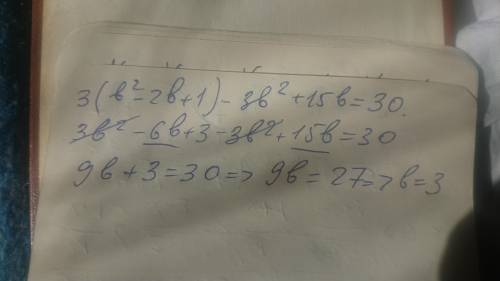 3(b²-2b+1)-3b²+15b=30.
3b²-6b+3-3b²+15b=30
9b+3=30=>9b=27=>b=3